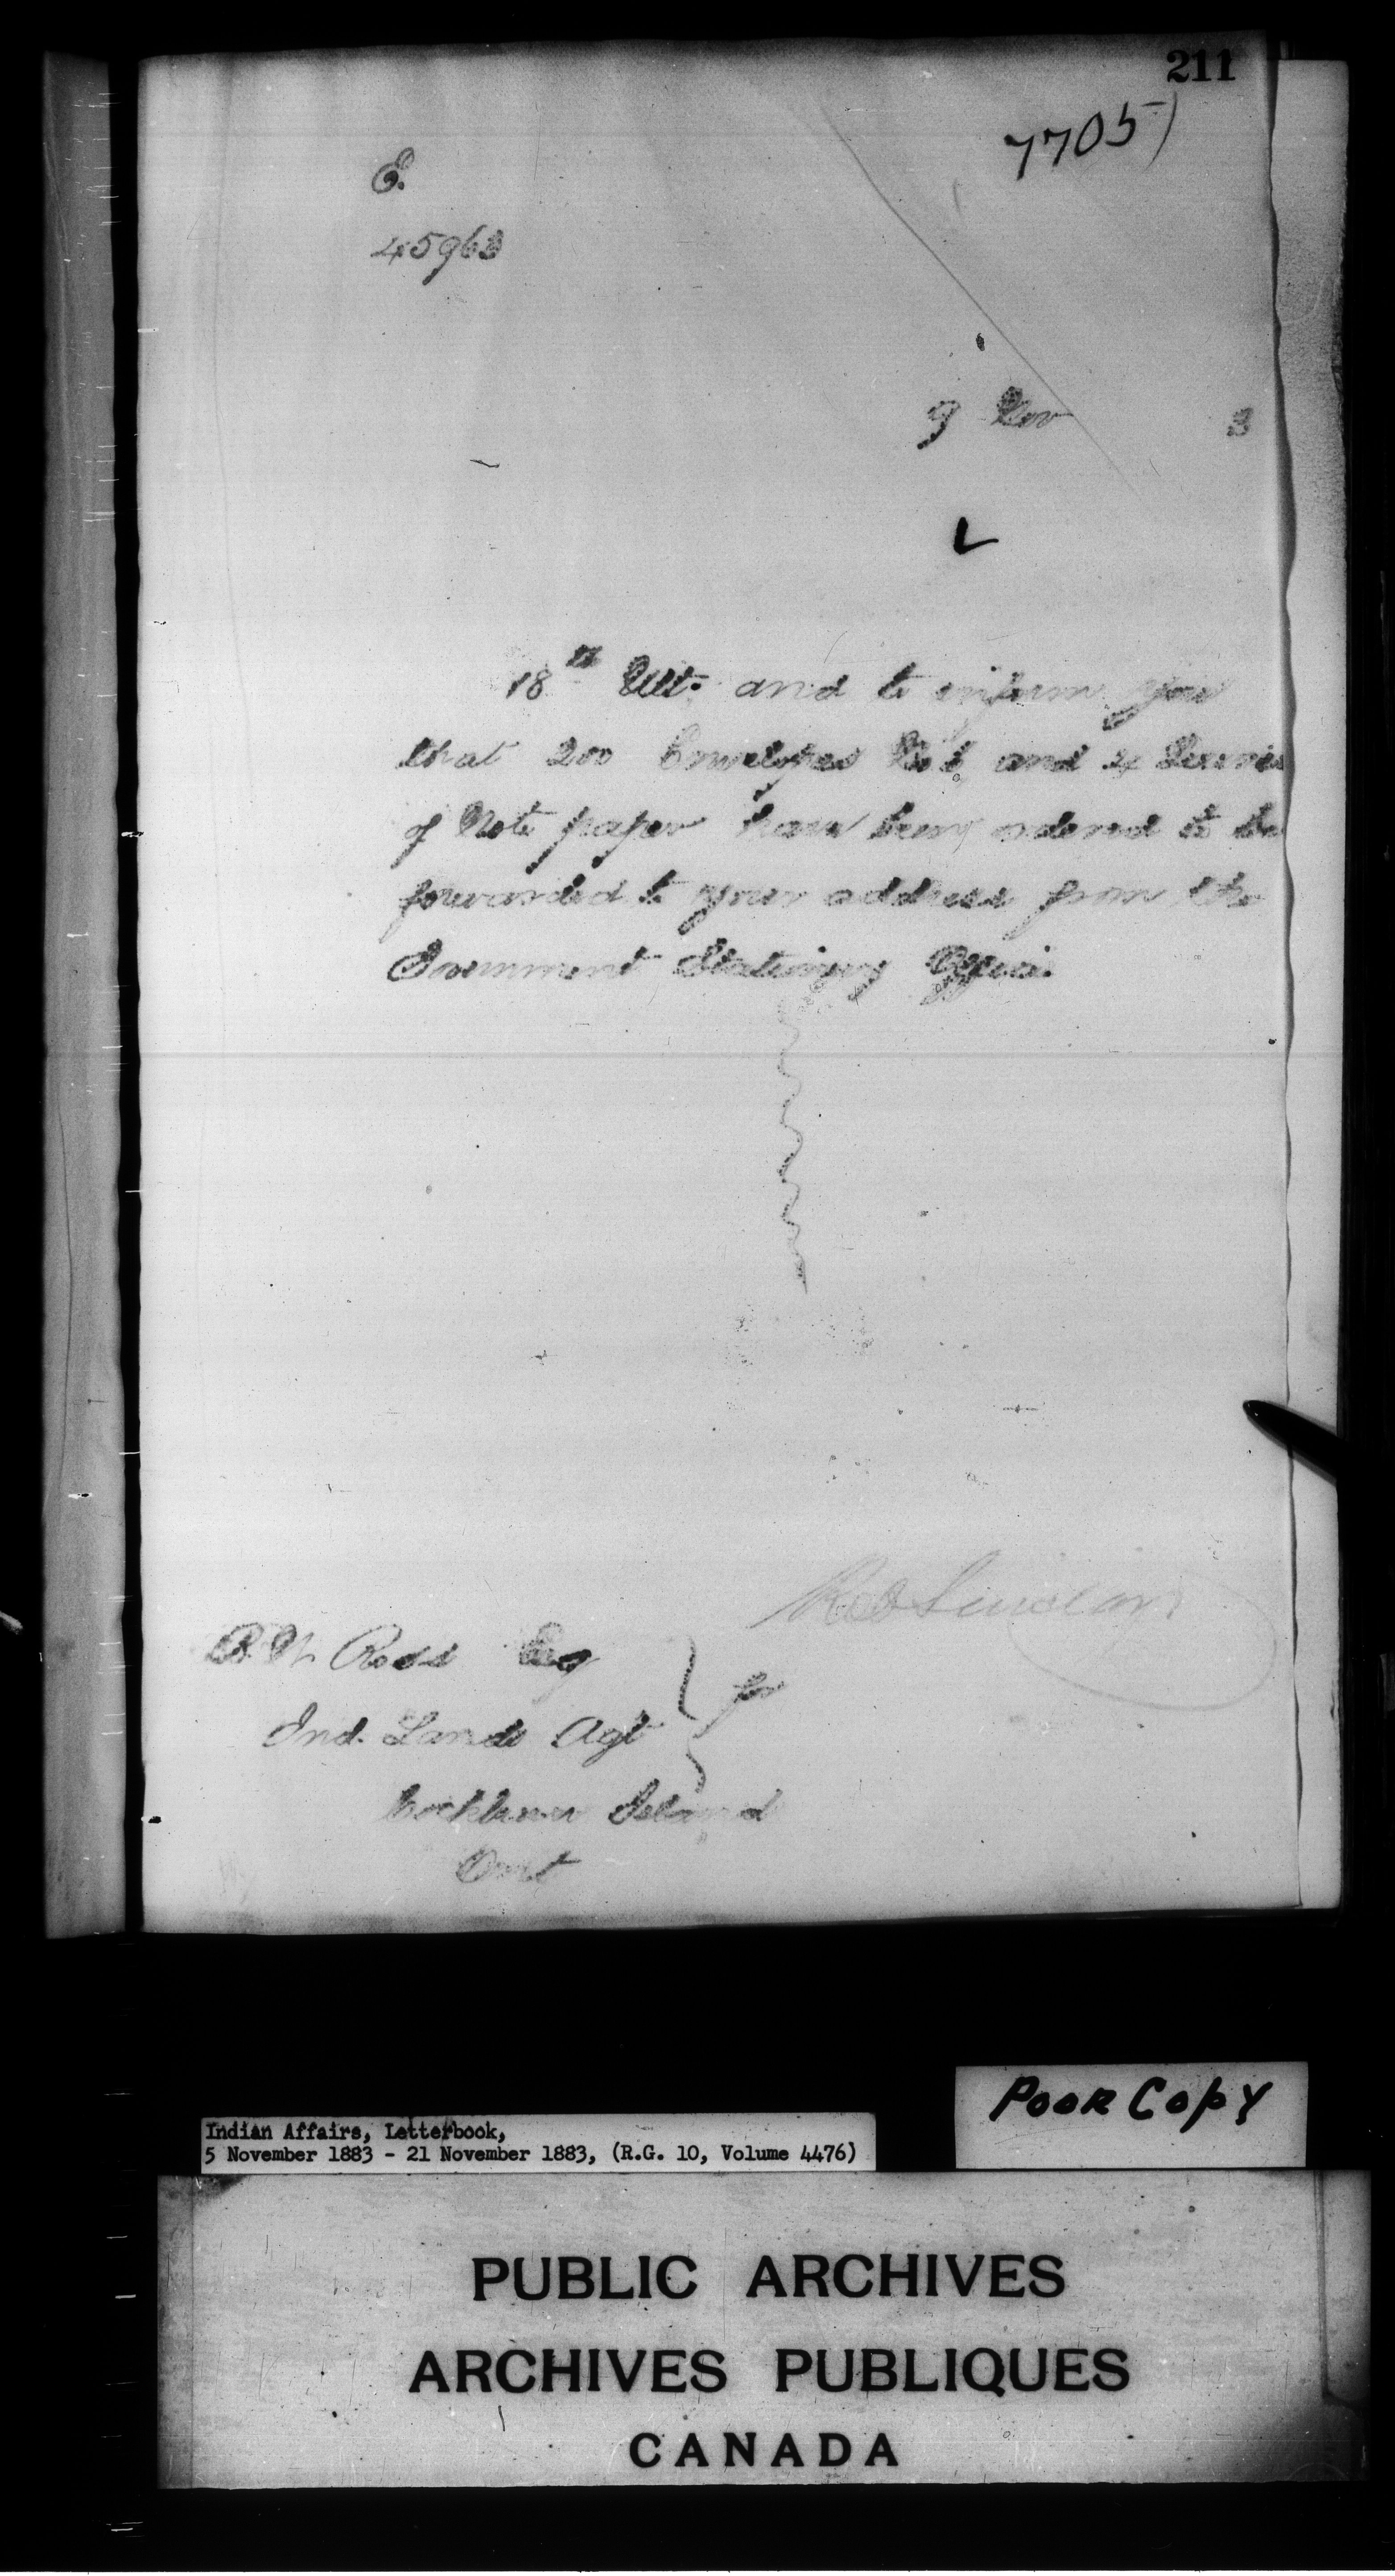 211
7705)
E.
45963
9 Nov 3
18th Ult. and to inform you
that 200 Envelopes No 6, and 4 Quires
of Note paper have been ordered to be
forwarded to your address from the
Government Stationery Office.
B. W. Ross Esq
Ind. Lands Agt
for
Cockburn Island
Ont
Poor Copy
Indian Affairs, Letterbook,
5 November 1883 - 21 November 1883, (R.G. 10, Volume 4476)
PUBLIC ARCHIVES
ARCHIVES PUBLIQUES
CANADA